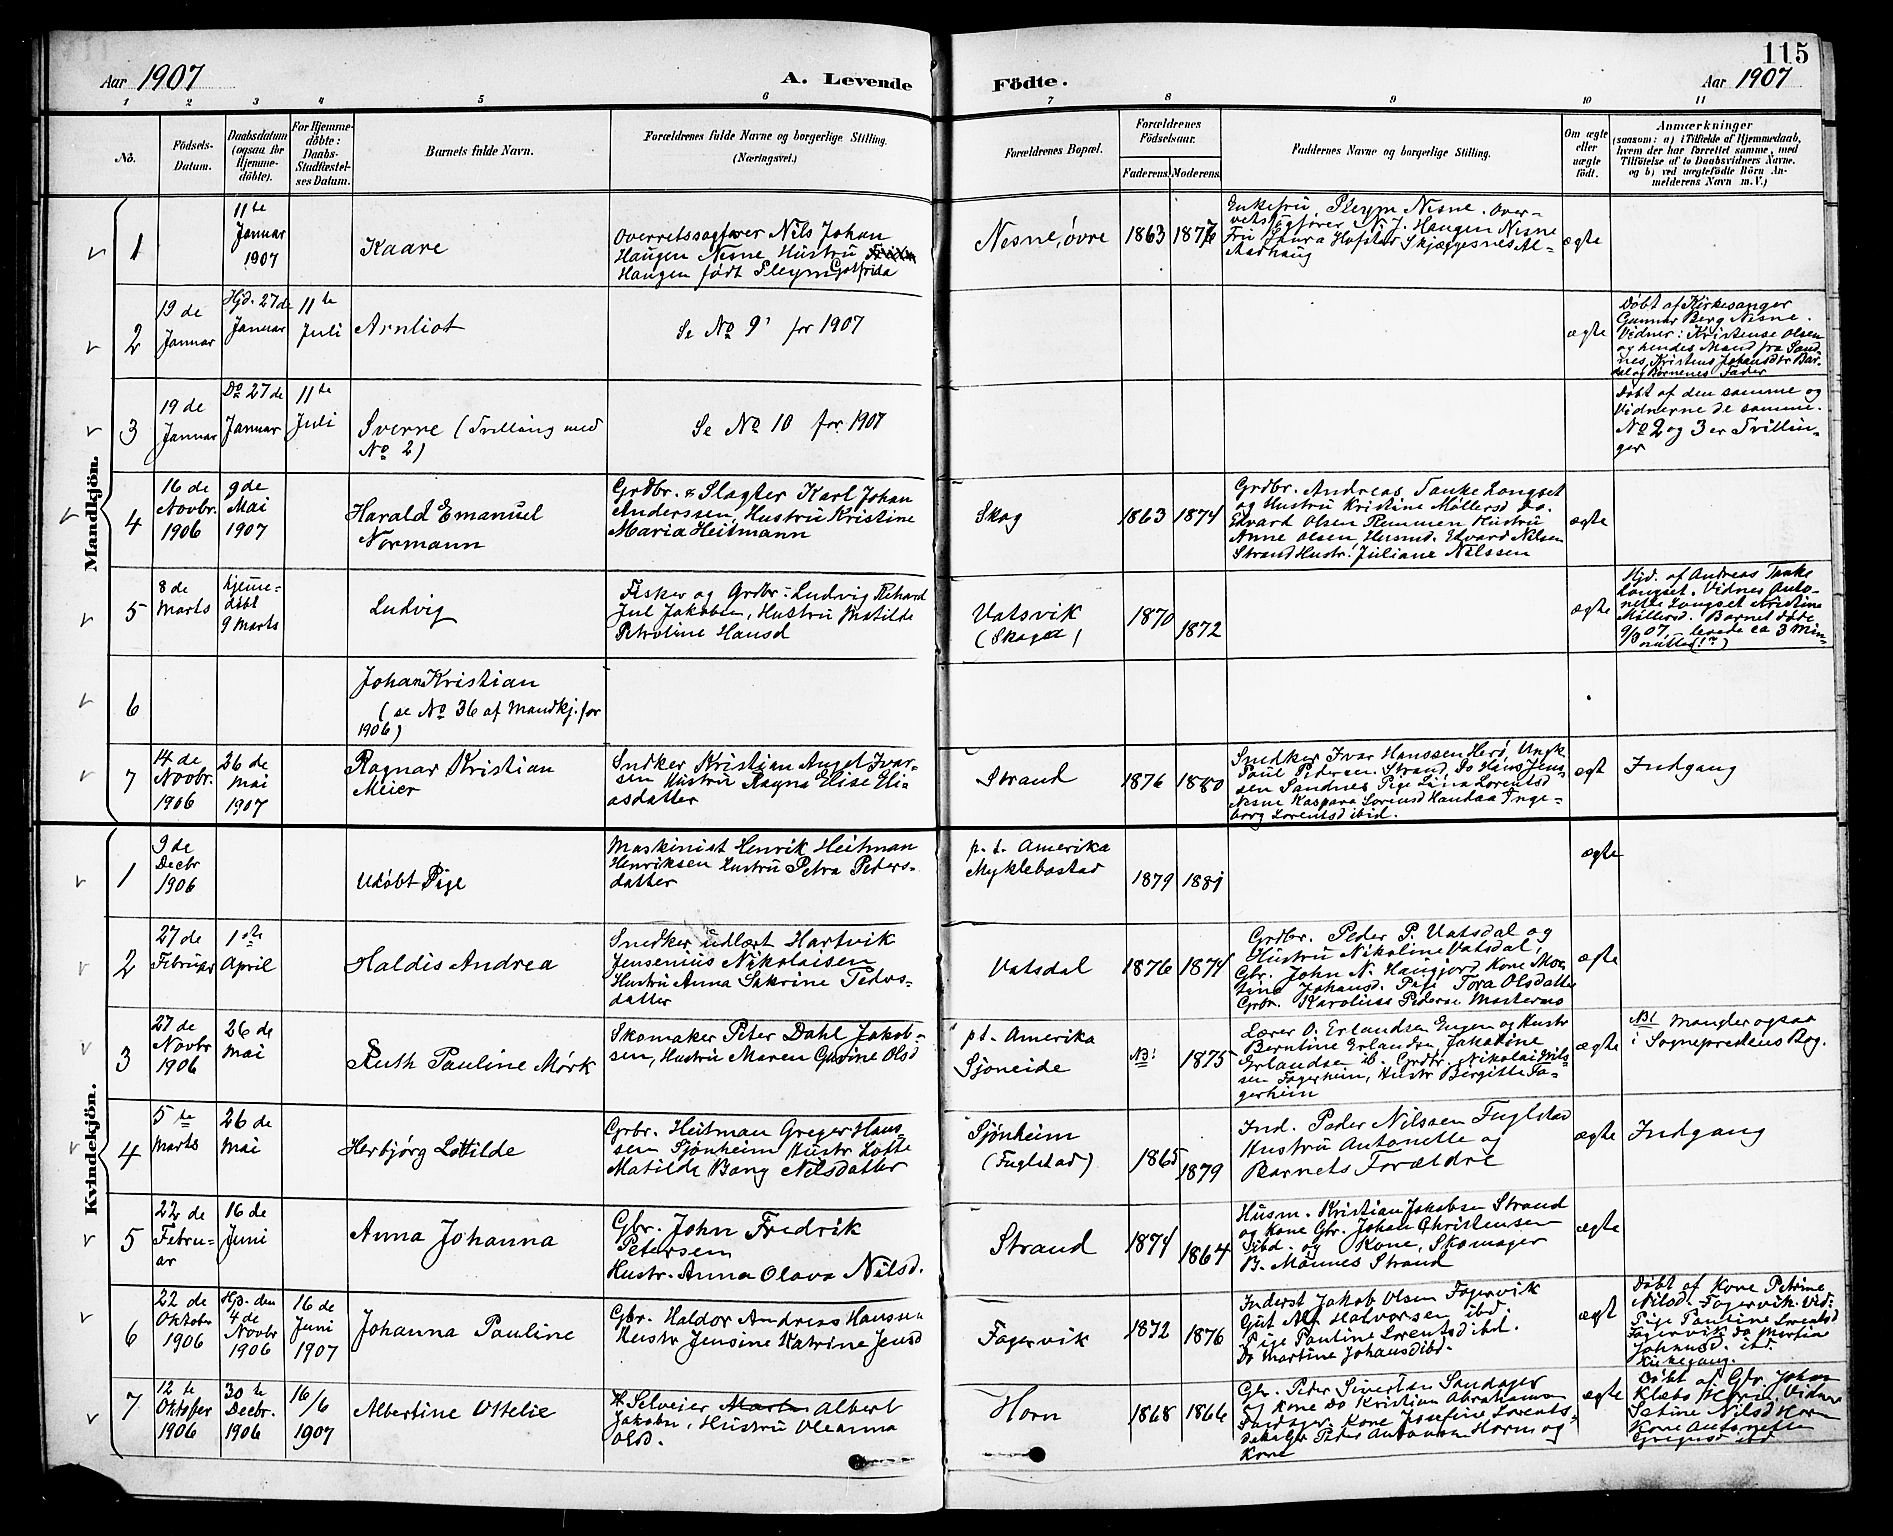 115
Aar 1907
A. Levende
Födte.
Aar 1907
1 2 3 4 5 6 7 8 9 10 11
No.
Födsels-
Datum.
Daabsdatum
(ogsaa for
Hjemme-
döbte).
For Hjemme-
döbte:
Daabs-
Stadfæstel-
ses Datum.
Barnets fulde Navn.
Forældrenes fulde Navne og borgerlige Stilling.
(Næringsvei.)
Forældrenes Bopæl.
Forældrenes
Födselsaar.
Faderens. Moderens.
Faddernes Navne og borgerlige Stilling.
Om ægte
eller
uægte
födt.
Anmærkninger
(saasom: a) i Tilfælde af Hjemmedaab,
hvem der har forrettet samme, med
Tilföielse af to Daabsvidners Navne.
og b) ved uægtefödte Börn An-
melderens Navn m. V.)
Mandkjön.
1
11te
Januar
1907
Kaare
Overretssagfører Nils Johan
Haugen Nesne Hustru
Haugen født Pleym Gotfrida
Nesne, øvre
1863 1876
Enkefru Pleym Nesne. Over-
retssagfører N. J. Haugen Nesne
Fru Thura Hofstad Skjæggesnes
Aarhaug
ægte
2
19 de
Januar
Hjd. 27 de
Januar
11te
Juli
Arnliot
Se No 9 for 1907
ægte
Døbt af Kirkesanger
Gunnar Berg Nesne.
Vidner: Kristense Olsen
og hendes Mand fra Sand-
nes, Kristens Johansd
og Børnenes Fader
3
19 de
Januar
Do 27 de
Januar
11te
Juli
Sverre (Tvilling med
No 2)
Se No 10 for 1907
Døbt af den samme og
Vidnerne de samme.
No 2 og 3 er Tvillin-
ger
4
16 de
Novbr.
1906
9 de
Mai
1907
Harald Emanuel
Normann
Grdbr. & Slagter Karl Johan
Anderssen, Hustru Kristine
Maria Heitmann
Skog
1863 1874
Grdbr. Andreas Tanke Longset
og Hustru Kristine Møllersd Do.
Edvard Olsen Remmen Hustru
Anne Olsen Husmd. Edvard Nilsen
Strand Hustr. Juliane Nilssen
ægte
5
8 de
Marts
hjeme-
døbt
9 Marts
Ludvig
Fisker og Grdbr: Ludvig Rikard
Jul Jakobsen, Hustru Matilde
Petroline Hansd
Vatsvik
(Skoged)
1870 1872
ægte
Hjd. af Andreas Tanke
Longset. Vidnes Anto-
nette Longset Kristine
Møllersd. Barnet døde
9/3 07, levede ca 3 Min-
utter (!?)
6
Johan Kristian
(se No 36 af Mandkj. for
1906)
7
14 de
Novbr.
1906
26 de
Mai
1907
Ragnar Kristian
Meier
Snedker Kristian Angel Ivar-
sen Hustru Ragna Elise Eli-
asdatter
Strand
1876 1880
Snedker Ivar Hanssen Herø, Ungk
Paul Pedersen Strand, Do Hans Jens-
sen Sandnes Pige Lina Lorentsd
Nesne Kaspara Lorensd Handaa Inge-
borg Lorentsd ibid.
ægt
Indgang
Kvindekjön.
1
9 de
Decbr
1906
Udøbt Pige
Maskinist Henrik Heitman
Henriksen Hustru Petra Peders-
datter
p. t. Amerika
Myklebostad
1879 1881
ægte
2
27 de
Februar
1ste
April
Haldis Andrea
Snedker udlært Hartvik
Jensenius Nikolaisen
Hustru Anna Sakrine Peders-
datter
Vatsdal
1876 1874
Grdbr. Peder P. Vatsdal og
Hustru Nikoline Vatsdal,
Gbr. John N. Haugjord Kone
Johansd. Pige Tora Olsdatter
Grbr. Karolius Pederse Mastermo
ægte
3
27 de
Novbr
1906
26 de
Mai
Ruth Pauline Mørk
Skomaker Peter Dahl Jakob-
sen, Hustru Maren Gurine Olsd
pt. Amerika
Sjoneide
NB! 1875
Lærer O. Erlandsen Engen og Hustr
Berntine Erlandsen Jakobine
Erlandsen ib. Grdbr. Nikolai Nils-
sen Fagerheim, Hustr Birgitte Fa-
gerheim
ægte
NB! Mangler ogsaa
i Sognepræstens Bog.
4
5te
Marts
26 de
Mai
Herbjørg Lotilde
Grbr. Heitman Greger Hans-
sen Sjønheim Hustr Lotte
Matilde Bang Nilsdatter
Sjønheim
(Fuglstad)
1865 1879
Ind. Peder Nilssen Fuglstad
Hustru Antonette og
Barnets Forældre
ægte
Indgang
5
22 de
Febru-
ar
16 de
Juni
Anna Johanna
Gbr. John Fredrik
Petersen
Hustr. Anna Olava Nilsd.
Strand
1874 1864
Husm. Kristian Jakobsen Strand
og Kone Gbr. Johan Christensen
ibd. og Kone, Skomager
B. Monnes Strand
ægte
6
22 de
Oktober
1906
Hjd. den
4 de
Novbr
1906
16 de
Juni
1907
Johanna Pauline
Gbr. Haldor Andreas Hanssen
Hustr Jensine Katrine Jensd
Fagervik
1872 1876
Inderst Jakob Olsen Fagervik
Gut Alf Halvorsen ibd.
Pige Pauline Lorentsd ibd.
Do Martine Johansd ibd.
ægt
Døbt af Kone Petrine
Nilsd. Fagervik. Vid:
Pige Pauline Lorentsd
Fagervik Do Martine
Johansd. ibd.
Kirkegang.
7
12te
Oktober
1906
30te
Decbr.
1906
16/6
1907
Albertine Ottelie
Selveier Albert
Jakobsn, Hustru Oleanna
Olsd.
Horn
1868 1866
Gbr. Peder Sivertsen Sandager
og Kone Do Kristian Abrahamsen
Sandager. Kone Josefine Lorents-
Gbr Peder Antonsen Horn og
Kone
ægte
Døbt af Gbr. Johan
Klæbo Horn. Vidner
Setine Nilsd Horn
Kone Antonette
Gregusd ibd